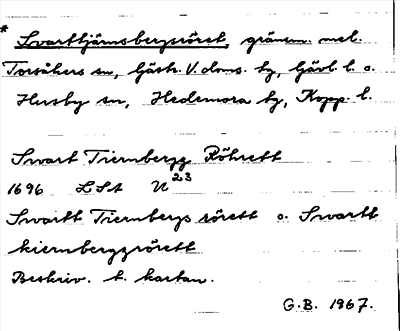 * Svarttjärnsbergsröret, gränsm. mel.
Torsåkers sn, Gästr. V. doms. hg, Gävl. l. o.
Husby sn, Hedemora hg, Kopp. l.
Swart Tiernbergz Röhrett
1696 LSA U 23
Swartt Tiernbergs rörett o. Swartt
kiernbergzrörett
Beskriv. t. kartan.
G.B. 1967.